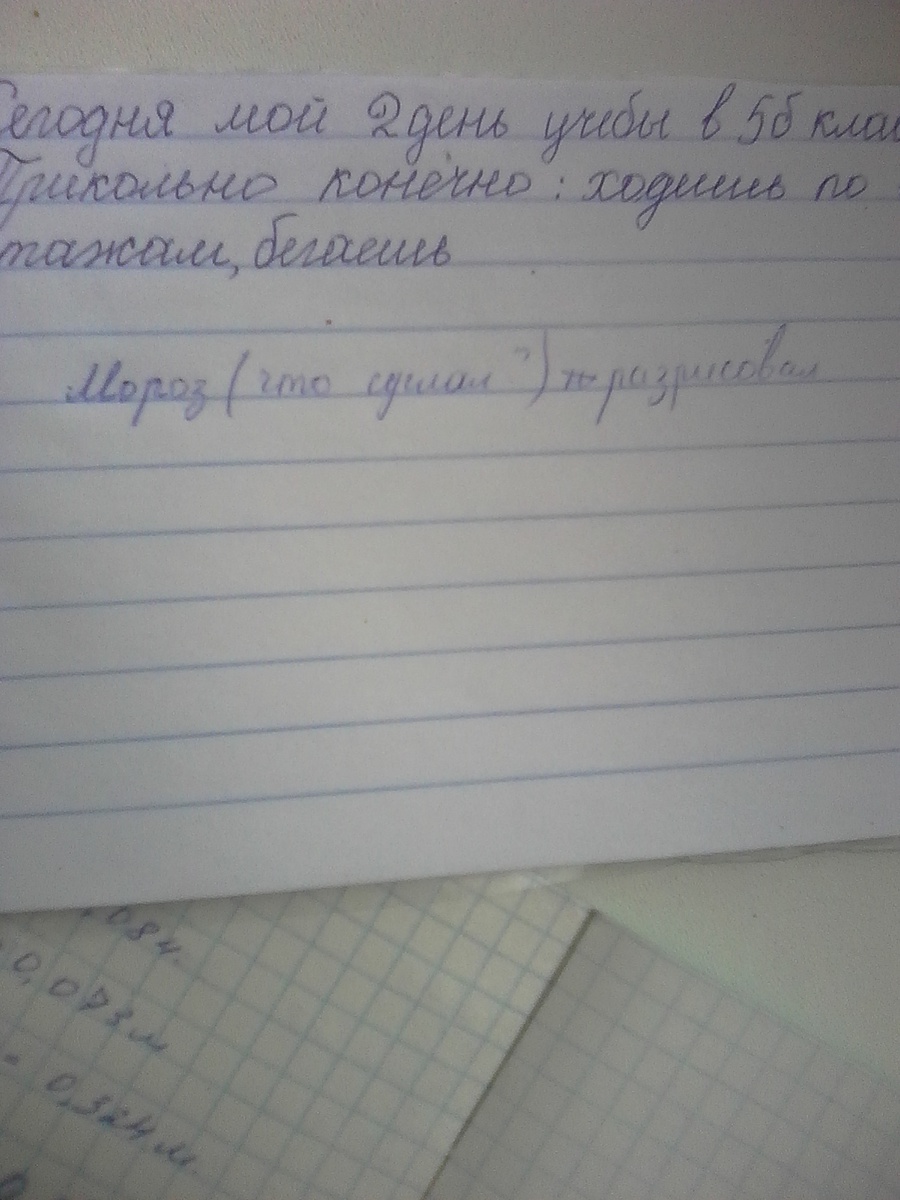 Сегодня мой 2 день учебы в 5б клас
Прикольно конечно: ходишь по
тажам, бегаешь
Мороз (что сделал?) разрисовал
,084.
0,073 м
- 0,324 м.